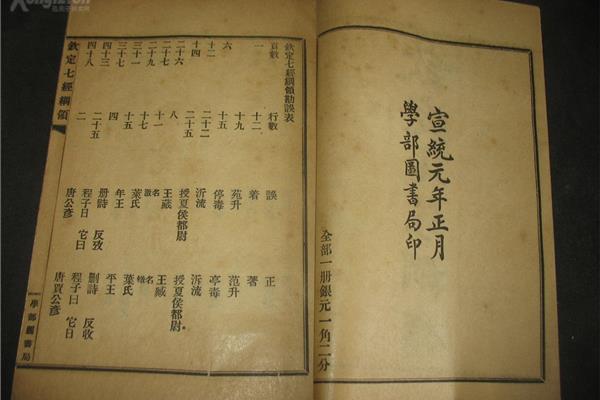 宣統元年正月
學部圖書局印
全部一册銀元一角二分
欽定七經綱領勘誤表
頁數 行數 誤 正
一 十二 着 著
六 十九 苑升 范升
十二 十五 停毒 亭毒
十四 二十二 沂流 泝流
二十六 二十五 授夏侯都尉 授夏侯都尉
二十九 八 王藏 王臧
三十一 十一 名 名
三十七 十七 葉氏 葉氏
四十三 十五 年王 平王
四十八 四 册詩 刪詩
二十五 程子日 程子曰
二 唐公彥 唐賈公彥
反攷 反收
它曰 它日
欽定七經綱領
學部圖書局